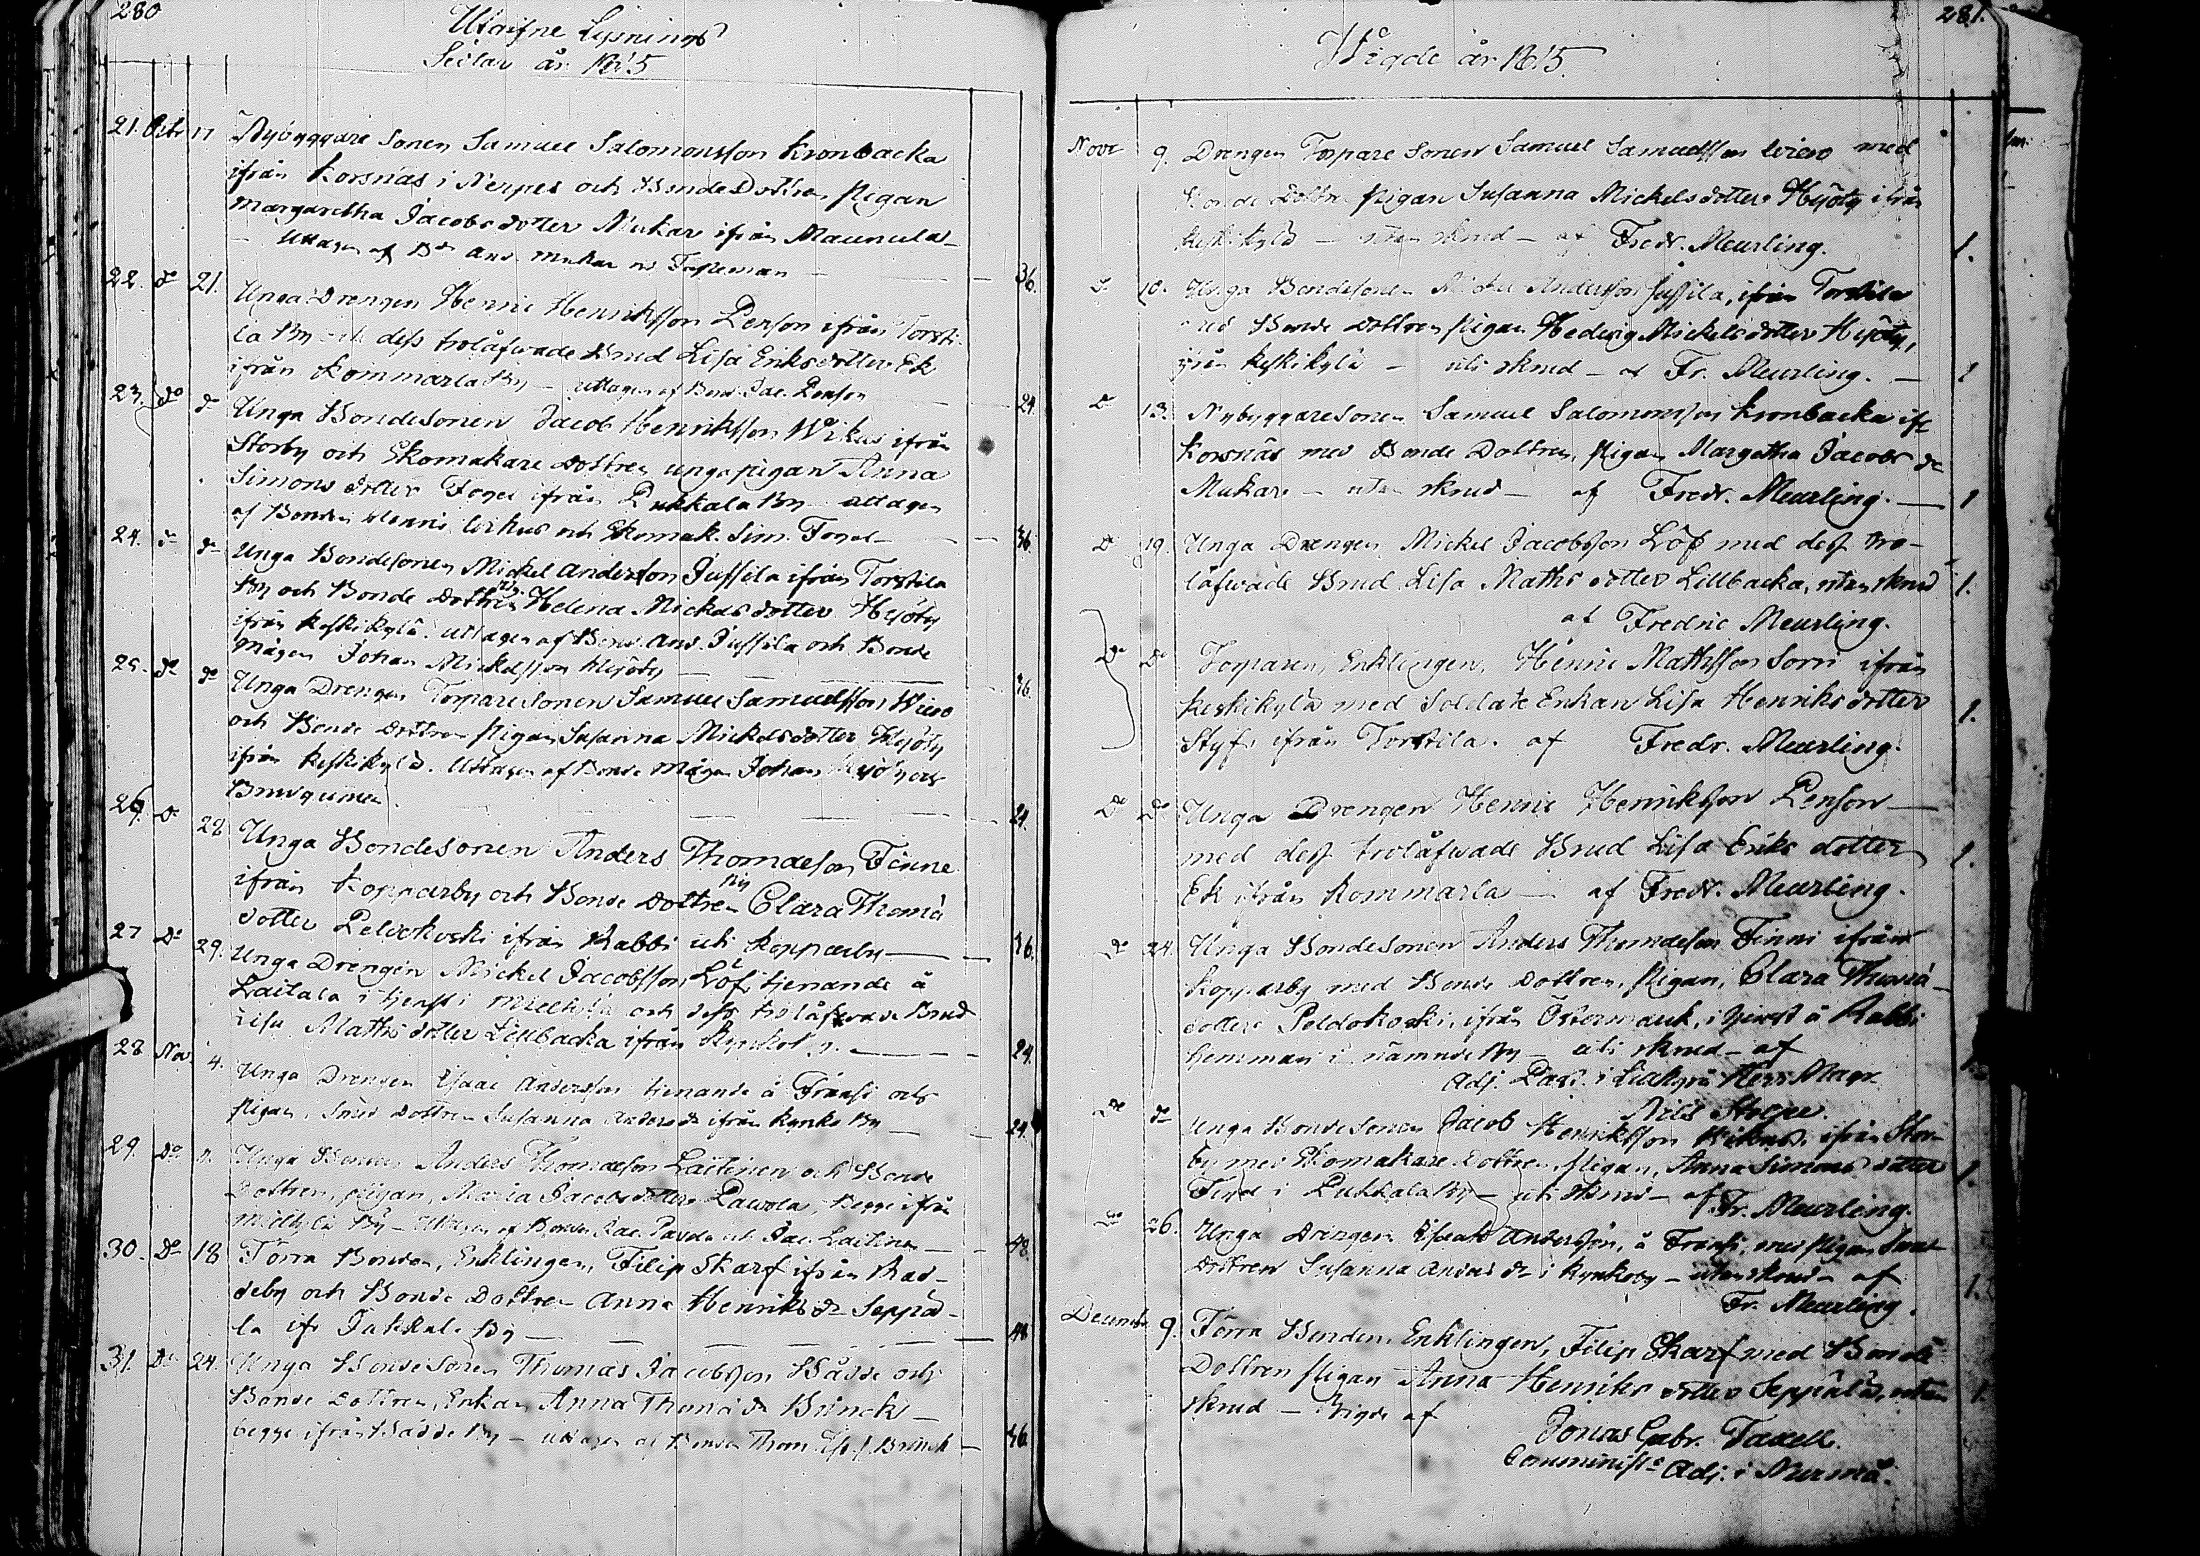 280
Utgifne Lysnings
Sedlar år 1815
21. Octr 17 Nybyggare Sonen Samuel Salomonsson Kronbacka
ifrån Korsnäs i Nerpes och Bonde Dottren Pigan
Margaretha Jacobs dotter Mukar ifrån Maunula
Uttagen af Bd And. Mukar
22. do 21. Unga Drengen Henric Henriksson Penson ifrån Torsti-
la By och dess trolåfwade Brud Lisa Eriks dotter Ek
ifrån Kommarla By – uttagen af Bond. Jac. Penson
36.
23. do do Unga Bondesonen Jacob Henriksson Wikus ifrån
24.
Storby och Skomakare Dottren unga pigan Anna
Simons dotter ifrån Pukkala By uttagen
af Bonden Henric Wikus och Skomak. Sim.
36.
24. do do Unga Bondesonen Mickel Andersson Jussila ifrån Torstila
By och Bonde Dottren Pig. Helena Mickels dotter Hyöty
ifrån Keskikylä. uttagen af Bond. And. Jussila och Bonde
Mågen Johan Mickelsson Hyöty
36.
25. do do Unga Drengen Torpare Sonen Samuel Samuelsson Wiero
och Bonde Dottren Pigan Susanna Mickels dotter Hyöty
ifrån Keskikylä. Uttagen af Bonde Mågen Johan Hyöty och
Brudgumen
24.
26. do 28 Unga Bondesonen Anders Thomasson Finne
ifrån Kopparby och Bonde Dottren Pig Clara Thomæ
dotter Peldokoski ifrån Rabbi uti Kopparby
36.
27 Do 29. Unga Drengen Mickel Jacobsson Löf, tjenande å
Laitala i och dess trolåfwade Brud
Lisa Maths dotter Lillbacka ifrån
24.
28 Nov 4. Unga Drengen Isaac Andersson tienande å Fränsi och
Pigan, Smed Dottren Susanna Anders dr ifrån Kyrko By
24.
29. Do Unga Bonden Anders Thomasson Laitinen och Bonde
Dottren, pigan, Maria Jacobs dotter Pawola, begge ifrån
By – Uttagen af Bonden Jac. Pavola och Jac. Laitinen
48.
30. Do 18 Förra Bonden, Enklingen, Filip Skarf ifrån Rad-
deby och Bonde Dottren Anna Henriks dr Seppä-
la ifr Jakkula By
48
31. Do 24. Unga Bondesonen Thomas Jacobsson Bådde och
Bonde Dottren, Enkan Anna Thomæ dr Brinck
begge ifrån Bådde By – uttagen af Bonden Thom. Brinck
36
281.
Wigde år 1815.
Novr 9. Drengen Torpare Sonen Samuel Samuelsson Wiero med
Bonde Dottren Pigan Susanna Mickels dotter Hyöty ifrån
Keskikylä – utan skrud – af Fredr. Meurling.
1.
D 10. Unga Bondesonen Mickel Andersson Jussila, ifrån Torstila
med Bonde Dottren Pigan Hedwig Mickels dotter Hyöty,
ifrån Keskikylä – uti skrud – af Fr. Meurling.
1
Do 13. Nybyggare Sonen Samuel Salomonsson Kronbacka ifr
Korsnäs med Bonde Dottren, Pigan Margetha Jacobs dr
Mukar – utan skrud – af Fredr. Meurling.
1
Do 19. Unga Drengen Mickel Jacobsson Löf med dess tro-
låfwade Brud Lisa Maths dotter Lillbacka, utan skrud
1.
af Fredric Meurling.
Do Do Torparen, Enklingen, Henric Mathsson Sorri ifrån
Keskikylä med Soldate Enkan Lisa Henriks dotter
1.
Styf, ifrån Torstila. af Fredr. Meurling.
Do Do Unga Drengen Henric Henriksson Penson
med dess trolåfwade Brud Lisa Eriks dotter
1.
Ek ifrån Kommarla – af Fredr. Meurling.
Do 24. Unga Bondesonen Anders Thomasson Finni ifrån
Kopparby med Bonde Dottren, Pigan, Clara Thomæ
dotter Peldokoski, ifrån Östermark, i tjenst å Rabbi
hemman i nämnde By – uti skrud – af
1.
Adj. Past. i Lillkyro Herr Magr
Nils Stolpe.
Do do Unga Bondesonen Jacob Henriksson Wikus, ifrån Stor-
by med Skomakare Dottren, Pigan, Anna Simons dotter
1.
i Pukkala By – uti skrud – af Fr. Meurling.
Do 26. Unga Drengen Isaac Andersson, å Fränsi, med Pigan Smed
Dottren Susanna Anders dr i Kyrkoby – utan skrud – af
1.
Fr. Meurling.
December 9. Förra Bonden, Enklingen, Filip Skarf med Bonde
Dottren Pigan Anna Henriks dotter Seppälä, utan
1.
skrud – Wigde af
Jonas Gabr. Taxell.
Comminist. Adj. i Nurmo.